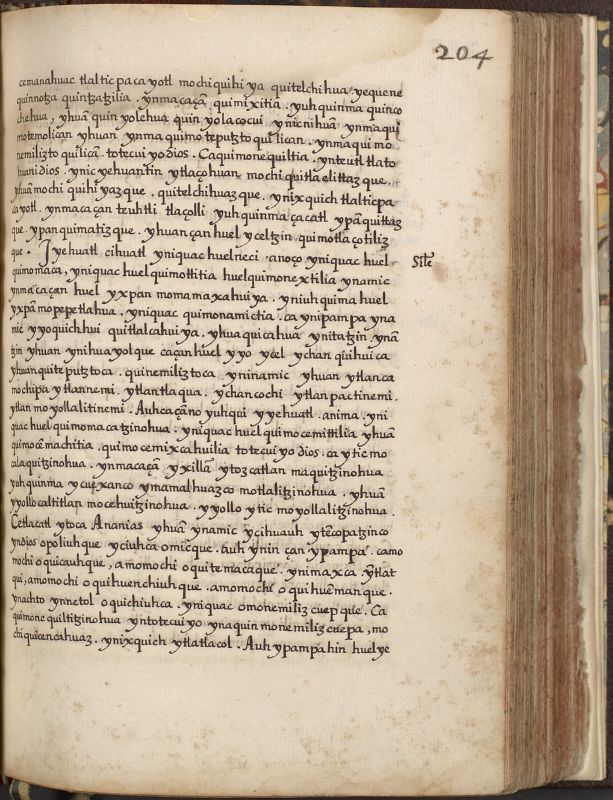 204
cemanahuac tlalticpacayotl mochi quihiya quitelchihua. yequene
quinnotza quintzatzilia. ynmaçaçã quimixitia. yuh quinma quinco
chehua, yhuã quin yolehua quin yolacocui ynic nihuã ynmaqui
motemolican yhuan ynma quimoteputzto quilican. ynmaquimo
nemilizto quilicã. totecuiyo dios. Ca quimonequiltia. ynteutl tlato
huani dios. ynic yehuantin ytlaçohuan mochi quitlaelittazque,
yhuan mochi quihiyazque. quitelchihuazque. ynixquich tlalticpa
cayotl. ynmaca çan teuhtli tlaçolli yuhquinma çacatl ypã quittaz
que. ypan quimatizque. yhuan çan huel yceltzin quimotlaçotiliz
que. Jyehuatl cihuatl yniquac huelneci. anoço yniquac huel
Sile
quimomaca, yniquac huel quimottitia huel quimonextilia ynamic
ynmaçaçan huel yxpan momamaxahuiya. yniuhquima huel
yxpã mopepetlahua. yniquac quimonamictia. ca ynipampa yna
mic yyoquichhui quitlalcahuiya. yhua quicahua ynitatzin. ynã
tzin yhuan ynihuayolque caçan huel yyo ycel ychan quihuica
yhuan quiteputztoca. quinemiliztoca yninamic yhuan ytlanca
mochipa ytlannemi. ytlantlaqua. ychancochi ytlan pactinemi.
ytlan moyollalitinemi. Auhcaçãno yuhqui yyehuatl. anima. yni
quac huel quimomacatzinohua. yniquac huel quimocemittilia yhuã
quimocẽmachitia. quimocemixcahuilia totecuiyo dios. ca ytic mo
calaquitzinohua. ynmaçaçã yxillã ytozcatlan maquitzinohua
yuhquinma ycuexanco ymamalhuazco motlalitzinohua. yhuã
yyollocaltitlan mocehuitzinohua. yyollo ytic moyollalitzinohua.
Cetlacatl ytoca Ananias yhuã ynamic yçihuauh ytẽcopatzinco
yndios opoliuhque yciuhca omicque. auh ynin çan ypampa. camo
mochi oquicauhque, amo mochi oquitemacaque. ynimaxca. ytlat
qui, amo mochi oquihuenchiuhque. amo mochi oquihuẽmanque.
ynachto ynnetol oquichiuhca. yniquac omonemilizcuepque. Ca
quimonequiltitzinohua yntotecuiyo ynaquin monemilizcuepa, mo
chi quicencahuaz. ynixquich ytlatlacol. Auh ypampahin huel ye